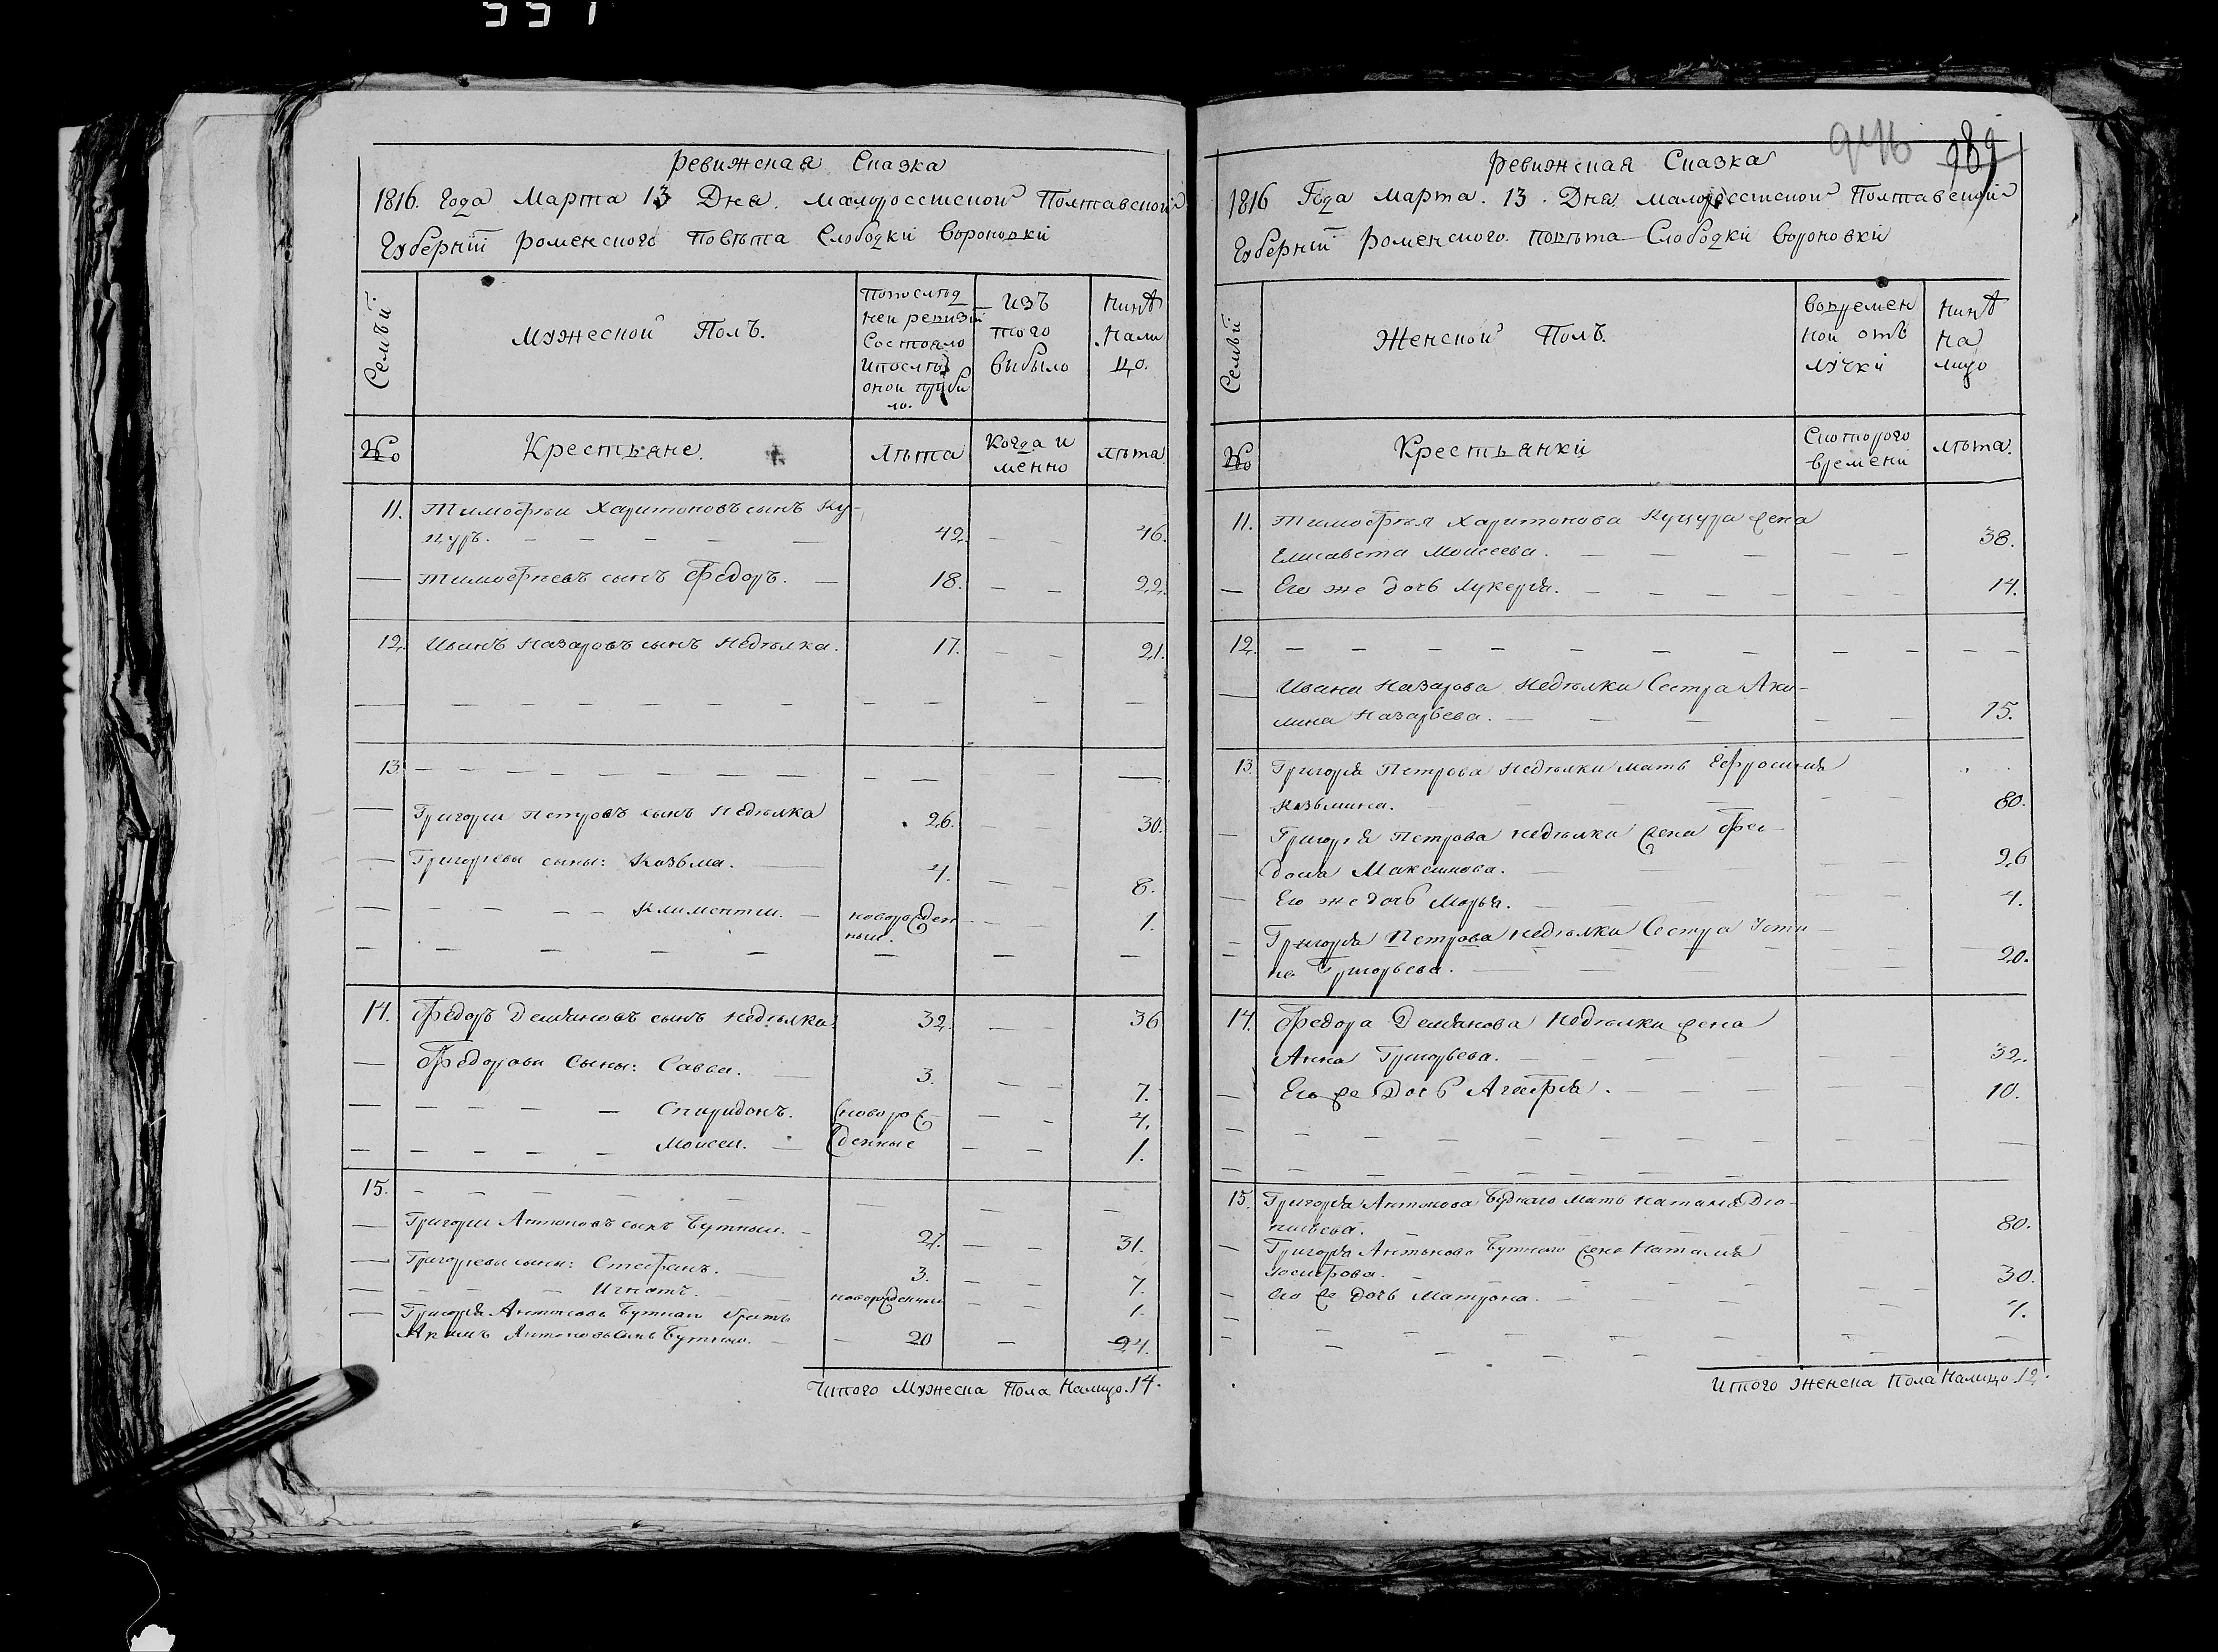 551
Ревижская Сказка
1816. Года Марта 13 Дня. малоросстской Полтавской
Губерніи роменского Повѣта Слободки Вороновки
Семьи.
Мужеской Полъ.
Попослѣд
неи ревизіи
Состояло
ипослѣ
онои прибы
ло.
Изъ
того
Выбыло
Нынѣ
Нали
цо.
№
Крестьяне.
Лѣта
Когда и
менно
лѣта
11. Тимофѣи Харитоновъ сынъ Ку-
цуръ. 42. 46.
Тимофѣевъ сынъ Федоръ. 18. 22.
12. Иванъ Назаровъ сынъ Недѣлка. 17. 21.
13.
Григории Петровъ сынъ Недѣлка 26. 30.
Григориевы сыны: Козьма. 4. 8.
Климентии. новорожден 1.
ные.
14. Федоръ Демяновъ сынъ Недѣлка. 32. 36
Федоровы Сыны: Савва. 3. 7.
Спиридонъ. новорож 4.
Моисеи. денные 1.
15.
Григории Антоновъ сынъ Бутныи. 27. 31.
Григориевы сыны: Стефанъ. 3. 7.
Игнатъ. новорожденныи 1.
Григорія Антонова Бутнаго братъ
Акимъ Антоновъ сынъ Бутныи. 20 24.
Итого Мужеска Пола Налицо. 14.
946 989
Ревижская Сказка
1816 Года марта. 13. Дня. малоросстской Полтавской
Губерніи роменского. повѣта Слободки Вороновки
Семьи
Женской Полъ.
Вовремен
ной отъ
лучки
Нынѣ
На
лицо
№
Крестьянки
Скоторого
времени
лѣта.
11. Тимофѣя Харитонова Куцура жена
Елисавета Моисеева. 38.
Его же дочь Лукерія. 14.
12.
Ивана Назарова Недѣлки Сестра Аки-
лина Назарьева. 15.
13. Григорія Петрова Недѣлки мать Ефросинія
Козьмина. 80.
Григорія Петрова недѣлки жена Фео-
дора Максимова. 26
Его же дочь Марья. 4.
Григорія Петрова недѣлки Сестра Усти
на Григорьева. 20.
14. Федора Демянова Недѣлки жена
Анна Григорьева. 32.
Его же Дочь Агафія. 10.
15. Григорія Антонова Бутнаго мать Наталія Дио-
нисьева. 80.
Григорія Антонова Бутнаго жена Наталія
30.
его же дочь Матрона. 4.
Итого Женска Пола Налицо. 12.